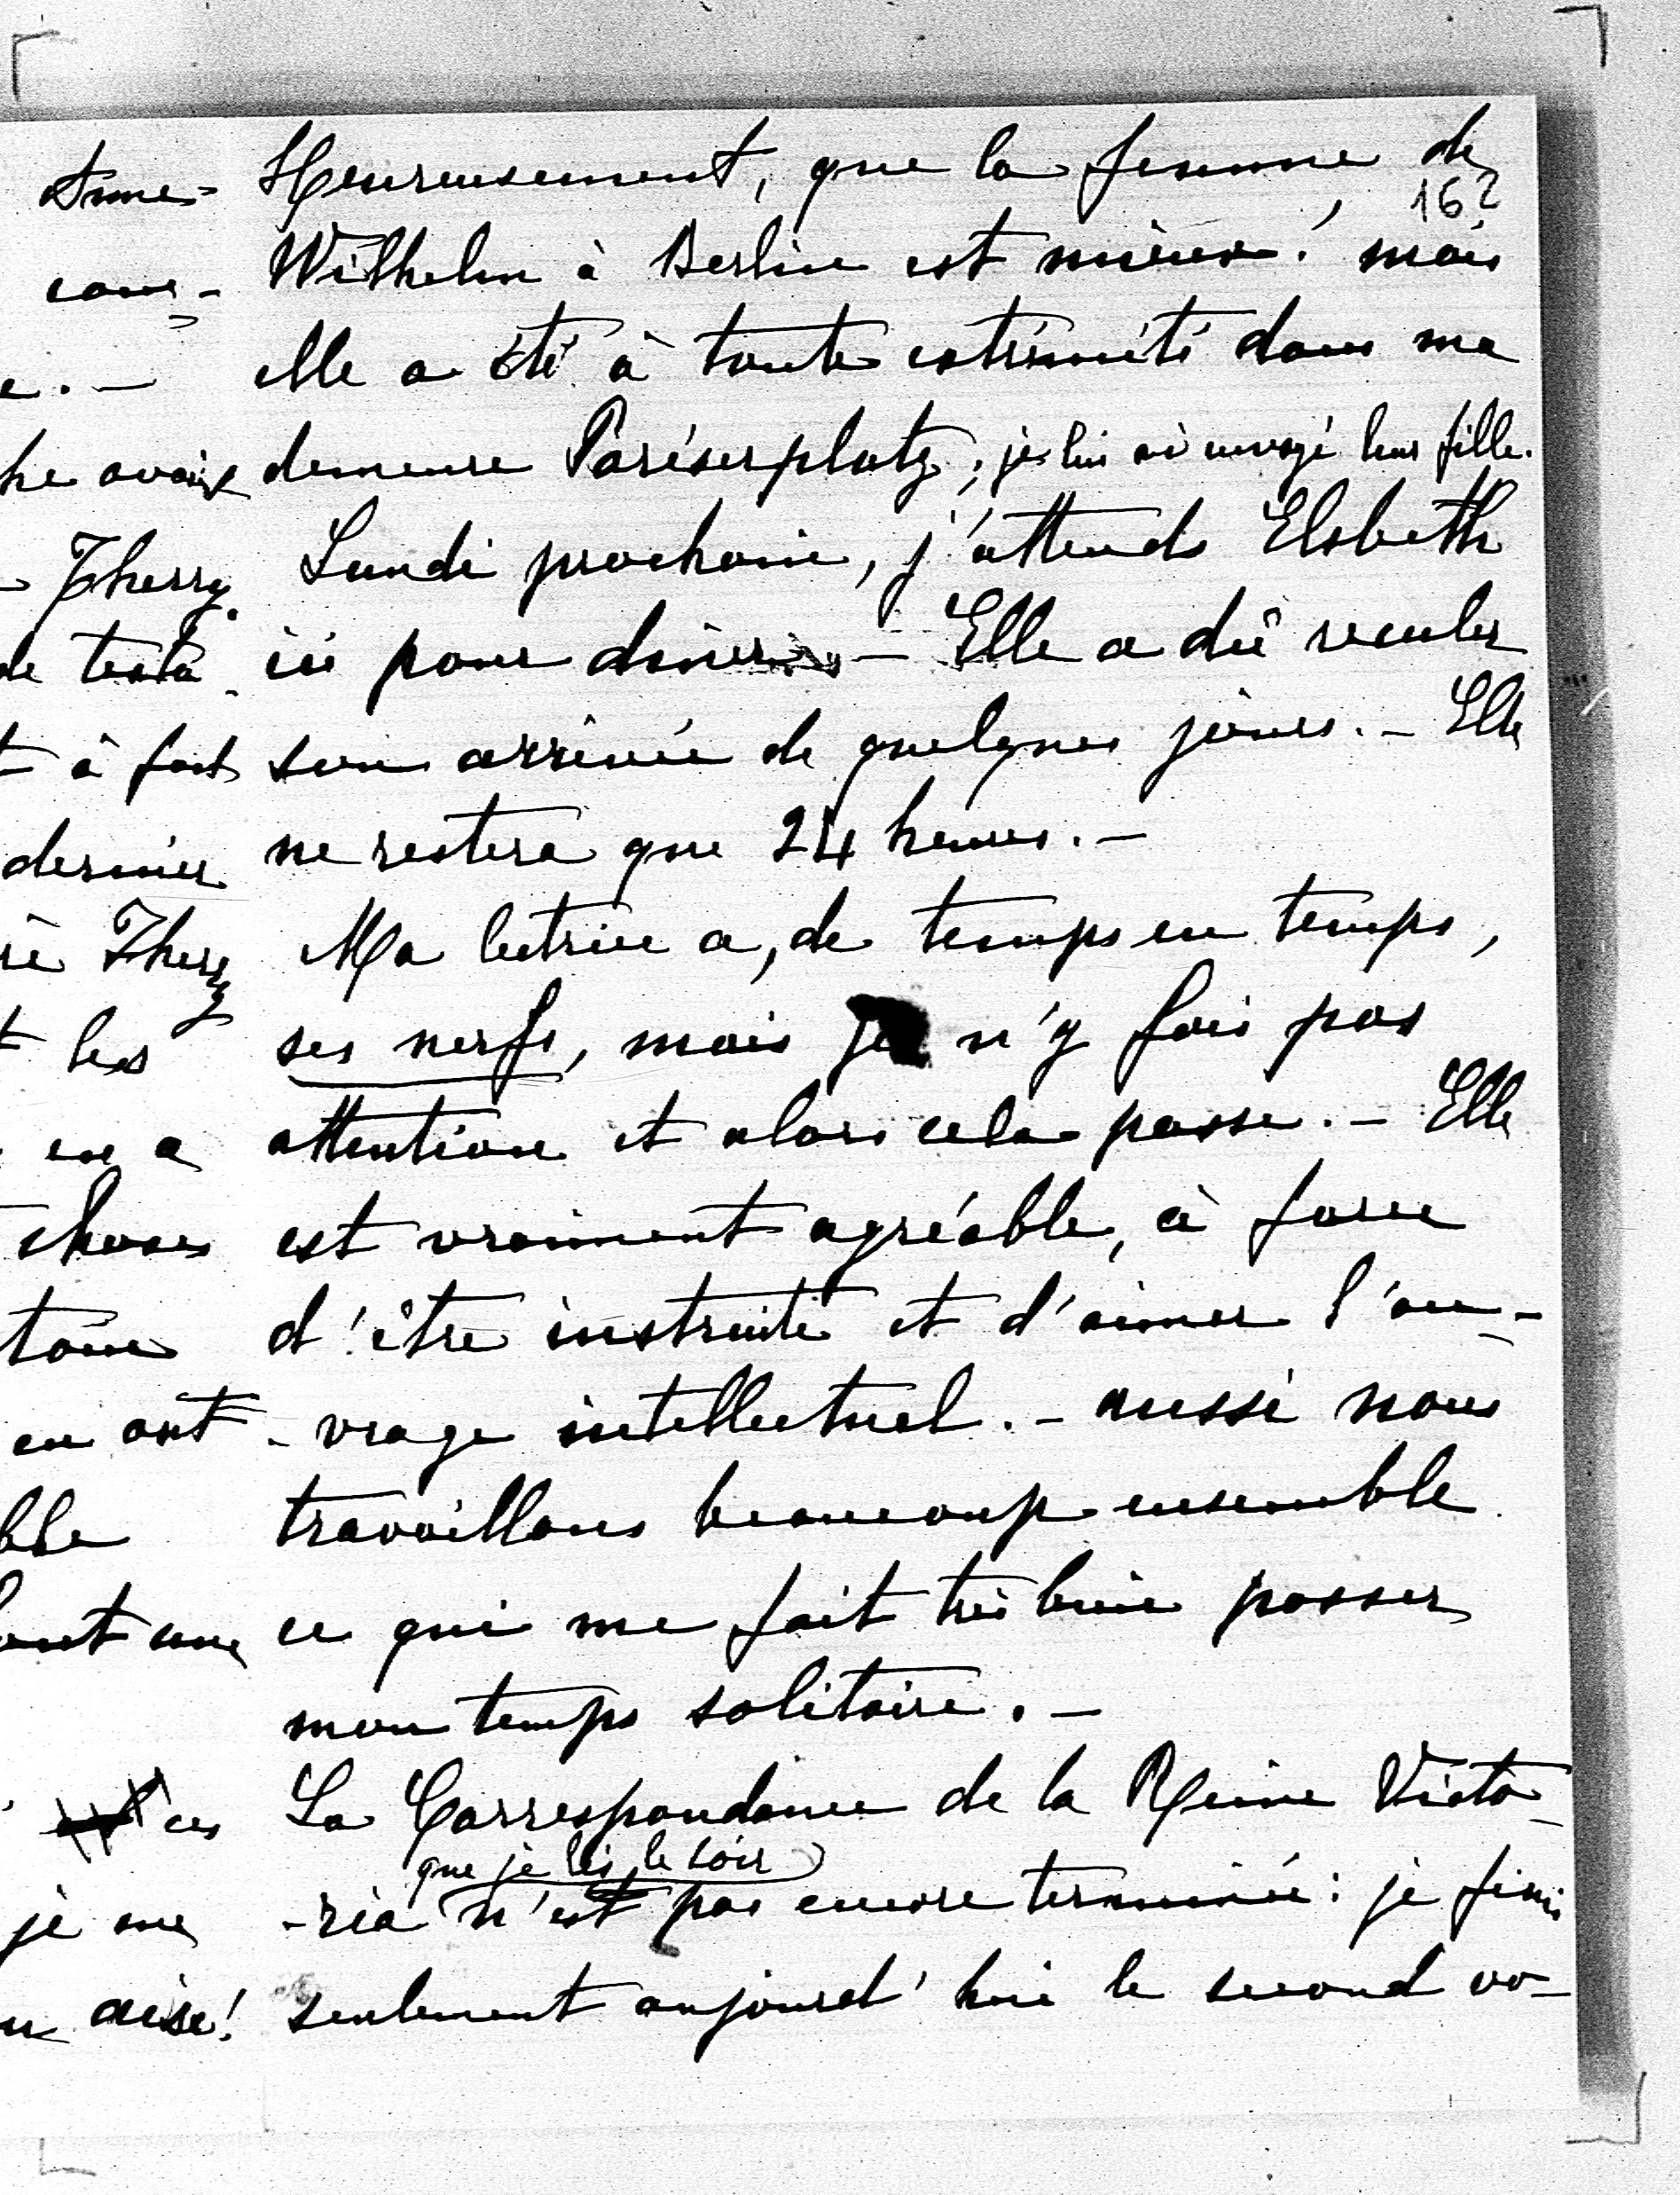 Heureusement, que la femme de
162
Wilhelm à Berlin est mieux! mais
elle a été à toute extrémité dans ma
demeure Pariserplatz, je lui ai envoyé leur fille.
Lundi prochain, j'attends Elsbeth
ici pour dîner. – Elle a dû reculer
son arrivée de quelques jours. – Elle
ne restera que 24 heures. –
Ma lectrice a, de temps en temps,
ses nerfs, mais je n'y fais pas
attention et alors cela passe. – Elle
est vraiment agréable, à force
d'être instruite et d'aimer l'ou-
-vrage intellectuel. – aussi nous
travaillons beaucoup ensemble
ce qui me fait très bien passer
mon temps solitaire. –
La Correspondance de la Reine Victo-
que je lis le soir
-ria n'est pas encore terminée: je finis
seulement aujourd'hui le second vo-
cou-
e. –
he avait
Therry.
de testa
t à fait
dernier
Thery
t les
en a
choses
tour
en ont
ble
ont une
ces
je me
aise!